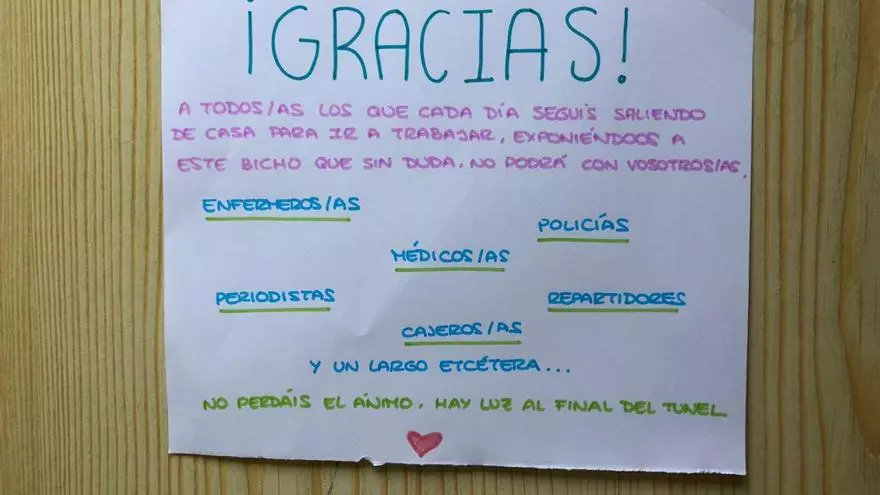 ¡GRACIAS!
A TODOS/AS LOS QUE CADA DÍA SEGUÍS SALIENDO
DE CASA PARA IR A TRABAJAR, EXPONIÉNDOOS A
ESTE BICHO QUE SIN DUDA, NO PODRÁ CON VOSOTROS/AS.
ENFERMEROS/AS
POLICÍAS
MÉDICOS/AS
PERIODISTAS
REPARTIDORES
CAJEROS/AS
Y UN LARGO ETCÉTERA...
NO PERDÁIS EL ÁNIMO, HAY LUZ AL FINAL DEL TUNEL